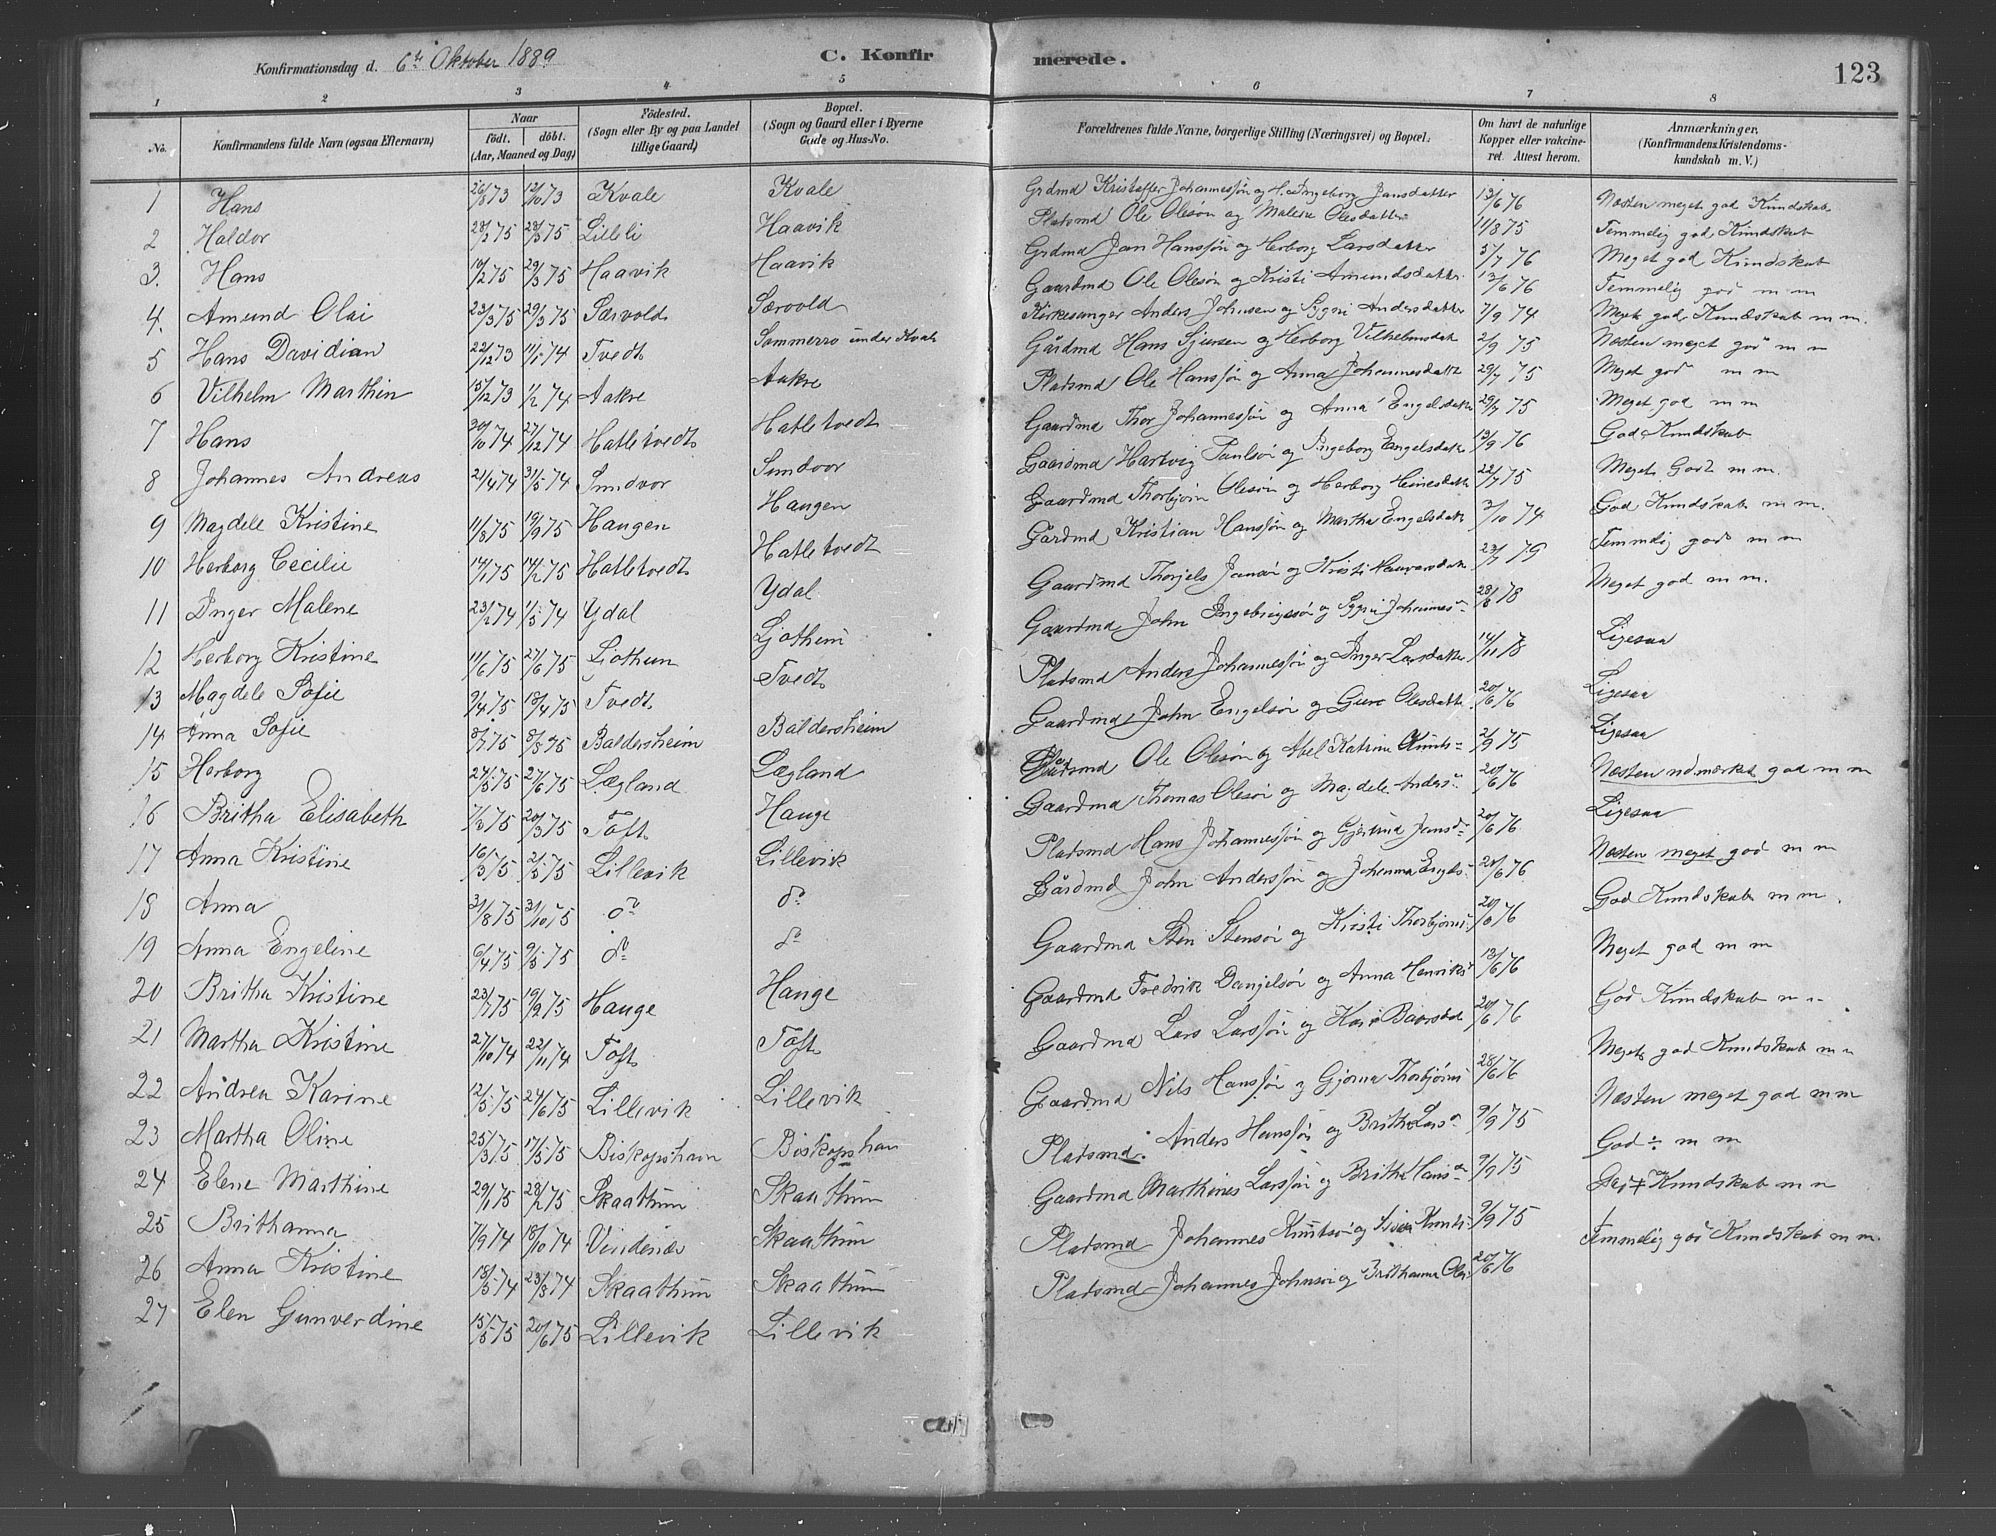 Konfirmationsdag d. 6te Oktober 1889
C. Konfirmerede.
123
1 2 3 4 5 6 7 8
No.
Konfirmandens fulde Navn (ogsaa Efternavn)
Naar
födt. döbt.
(Aar, Maaned og Dag)
Födested.
(Sogn eller By og paa Landet
tillige Gaard)
Bopæl.
(Sogn og Gaard eller i Byerne
Gade og Hus-No.
Forældrenes fulde Navne, borgerlige Stilling (Næringsvei) og Bopæl.
Om havt de naturlige
Kopper eller vakcine-
ret. Attest herom.
Anmærkninger.
(Konfirmandens Kristendoms-
kundskab m. V.)
1 Hans 26/8 73 12/10 73 Kvale Kvale Grdmd Kristoffer Johannessön og H. Ingeborg Jansdatter 13/6 76 Næsten meget god Kundskab
2 Haldor 28/2 75 28/3 75 Lilleli Haavik Pladsmd Ole Olesön og Malena Olesdatter 11/8 75 Temmelig god Kundskab
3. Hans 10/2 75 29/3 75 Haavik Haavik Grdmd Jan Hanssön og Herborg Larsdatter 5/7 76 Meget god Kundskab
4. Amund Olai 23/3 75 29/3 75 Særvold Særvold Gaardmd Ole Olesön og Kristi Amundsdatter 13/6 76 Temmelig god m m
5 Hans Davidian 22/12 73 11/1 74 Tvedt Sommerro under Kvale Kirkesanger Anders Johnsen og Sygni Andersdatter 7/9 74 Meget god Kundskab m m.
6 Vilhelm Marthin 15/12 73 1/2 74 Aakre Aakre Gårdmd Hans Sjursen og Herborg Vilhelmsdatt 2/9 75 Næsten meget god m m
7 Hans 20/10 74 27/12 74 Hatletvedt Hatletvedt Pladsmd Ole Hanssön og Anna Johannesdatt 29/7 75 Meget god m m
8 Johannes Andreas 21/4 74 31/5 74 Sundvor Sundvor Gaardmd Thor Johannessön og Anna Engelsdatter 29/7 75 Meget god m m
9 Magdele Kristine 11/8 75 19/9 75 Haugen Haugen Gaardmd Hartvig Paulsön og Ingeborg Engelsdatt 13/9 76 God Kundskab
10 Herborg Cecilie 14/1 75 14/2 75 Hatletvedt Hatletvedt Gaardmd Thorbjörn Olesön og Herborg Heinesdatt 22/7 75 Meget Godt m m.
11 Inger Malene 23/2 74 1/5 74 Ydal Ydal Gårdmd Kristian Hanssön og Martha Engelsdatt 2/10 74 God Kundskab m m.
12 Herborg Kristine 11/6 75 27/6 75 Ljothun Ljothun Gaardmd Thorjels Jansön og Kristi 23/7 79 Temmelig god m m
13 Magdele Sofie 9/4 75 18/4 75 Tvedt Tvedt Gaardmd John Ingebrigtsön og Sygni Johannes 28/8 78 Meget god m m.
14 Anna Sofie 8/7 75 8/8 75 Baldersheim Baldersheim Pladsmd Anders Johannessön og Inger Larsdatter 14/11 78 Ligesaa
15 Herborg 24/5 75 27/6 75 Lægland Lægland Gaardmd John Engelsön og Guro Olesdatt 20/6 76 Ligesaa
16 Britha Elisabeth 7/2 75 20/3 75 Toft Hauge Pladsmd Ole Olesön og Abel Katrina Knuts 2/9 75 Ligesaa
17 Anna Kristine 16/3 75 2/5 75 Lillevik Lillevik Gaardmd Thomas Olesön og Magdele Anders 20/6 76 Næsten udmærket god m m
18 Anna 21/8 75 31/10 75 do do Pladsmd Hans Johannessön og Gjertrud Jansd 20/6 76 Ligesaa
19 Anna Engeline 6/4 75 9/5 75 do do Gårdmd John Anderssön og Johanna Engels 20/6 76 Næsten meget god m m
20 Britha Kristine 23/7 75 19/9 75 Hauge Hauge Gaardmd Sten Stensön og Kristi Thorbjörns 20/8 76 God Kundskab m m.
21 Martha Kristine 27/10 74 22/11 74 Toft Toft Gaardmd Fredrik Danjelsön og Anna Henriks 13/6 76 Meget god m m
22 Andrea Karine 12/5 75 24/6 75 Lillevik Lillevik Gaardmd Lars Larssön og Kari Baarsdd 20/6 76 God Kundskab m m
23 Martha Oline 25/3 75 17/5 75 Biskopshavn Biskopshan Gaardmd Nils Hanssön og Gjorna Thorbjörns 28/6 76 Meget god Kundskab m m
24 Elene Marthine 29/1 75 28/2 75 Skaathun Skaathun Pladsmd. Anders Hanssön og Britha Lars 9/9 75 Næsten meget god m m
25 Brithanna 7/9 74 18/10 74 Vindenæs Skaathun Gaardmd Marthines Larssön og Britha Hans 9/9 75 God m m
26 Anna Kristine 18/5 74 23/8 74 Skaathun Skaathun Pladsmd Johannes Knutsön og Knuts 9/9 75 God Kundskab m m
27 Elen Gunverdine 15/5 75 20/6 75 Lillevik Lillevik Pladsmd Johannes Johnsön og Brithanna Oles 20/6 76 Temmelig god Kundskab m m.